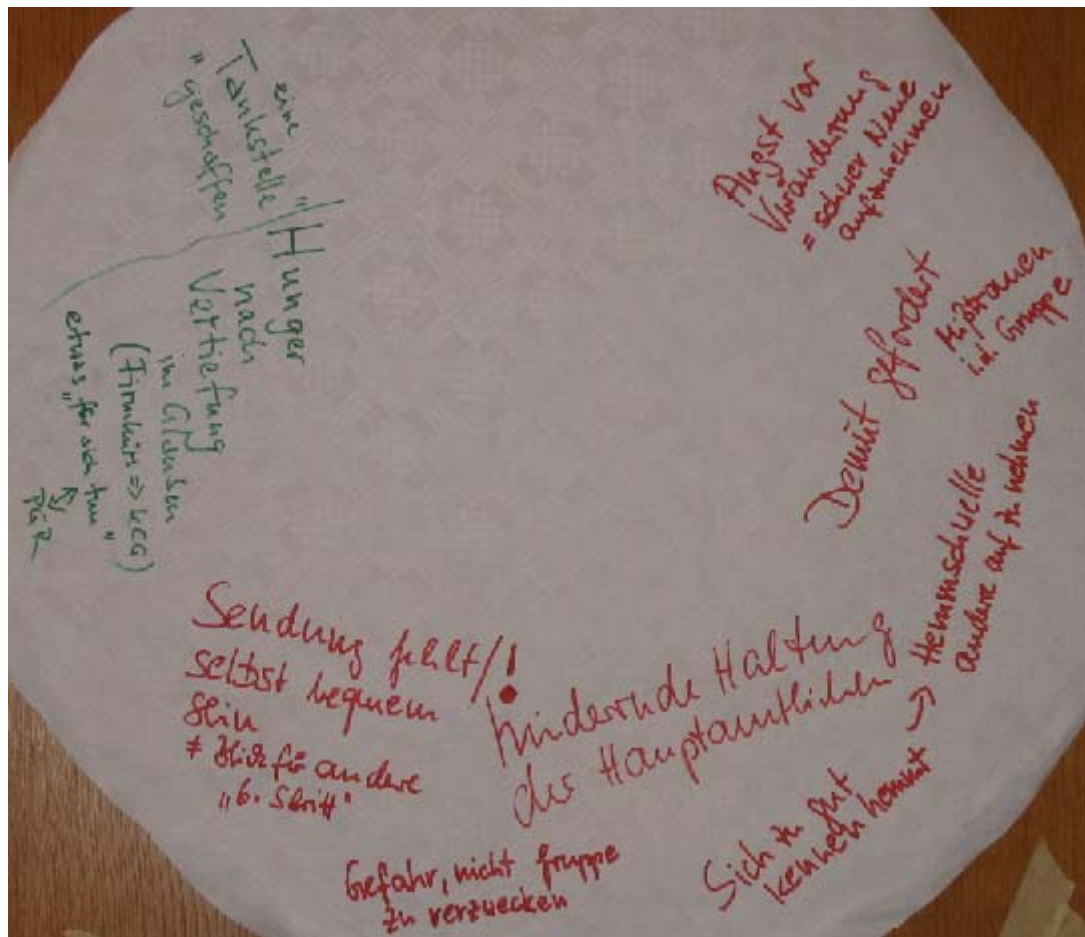 eine
Tankstelle
"geschaffen"
"Hunger
nach
Vertiefung
im Glauben
(Firmkurs => KCG)
etwas "für sich tun"
PGR
Angst vor
Veränderung
= schwer Neue
aufzunehmen
Mißtrauen
i.d. Gruppe
Demut gefordert
Hemmschwelle
andere auf zu nehmen
Sich zu gut
kennen hemmt →
hindernde Haltung
der Hauptamtlichen
Sendung fehlt/!
selbst bequem
sein
≠ Blick für andere
"6. Schritt"
Gefahr, nicht Gruppe
zu verzwecken